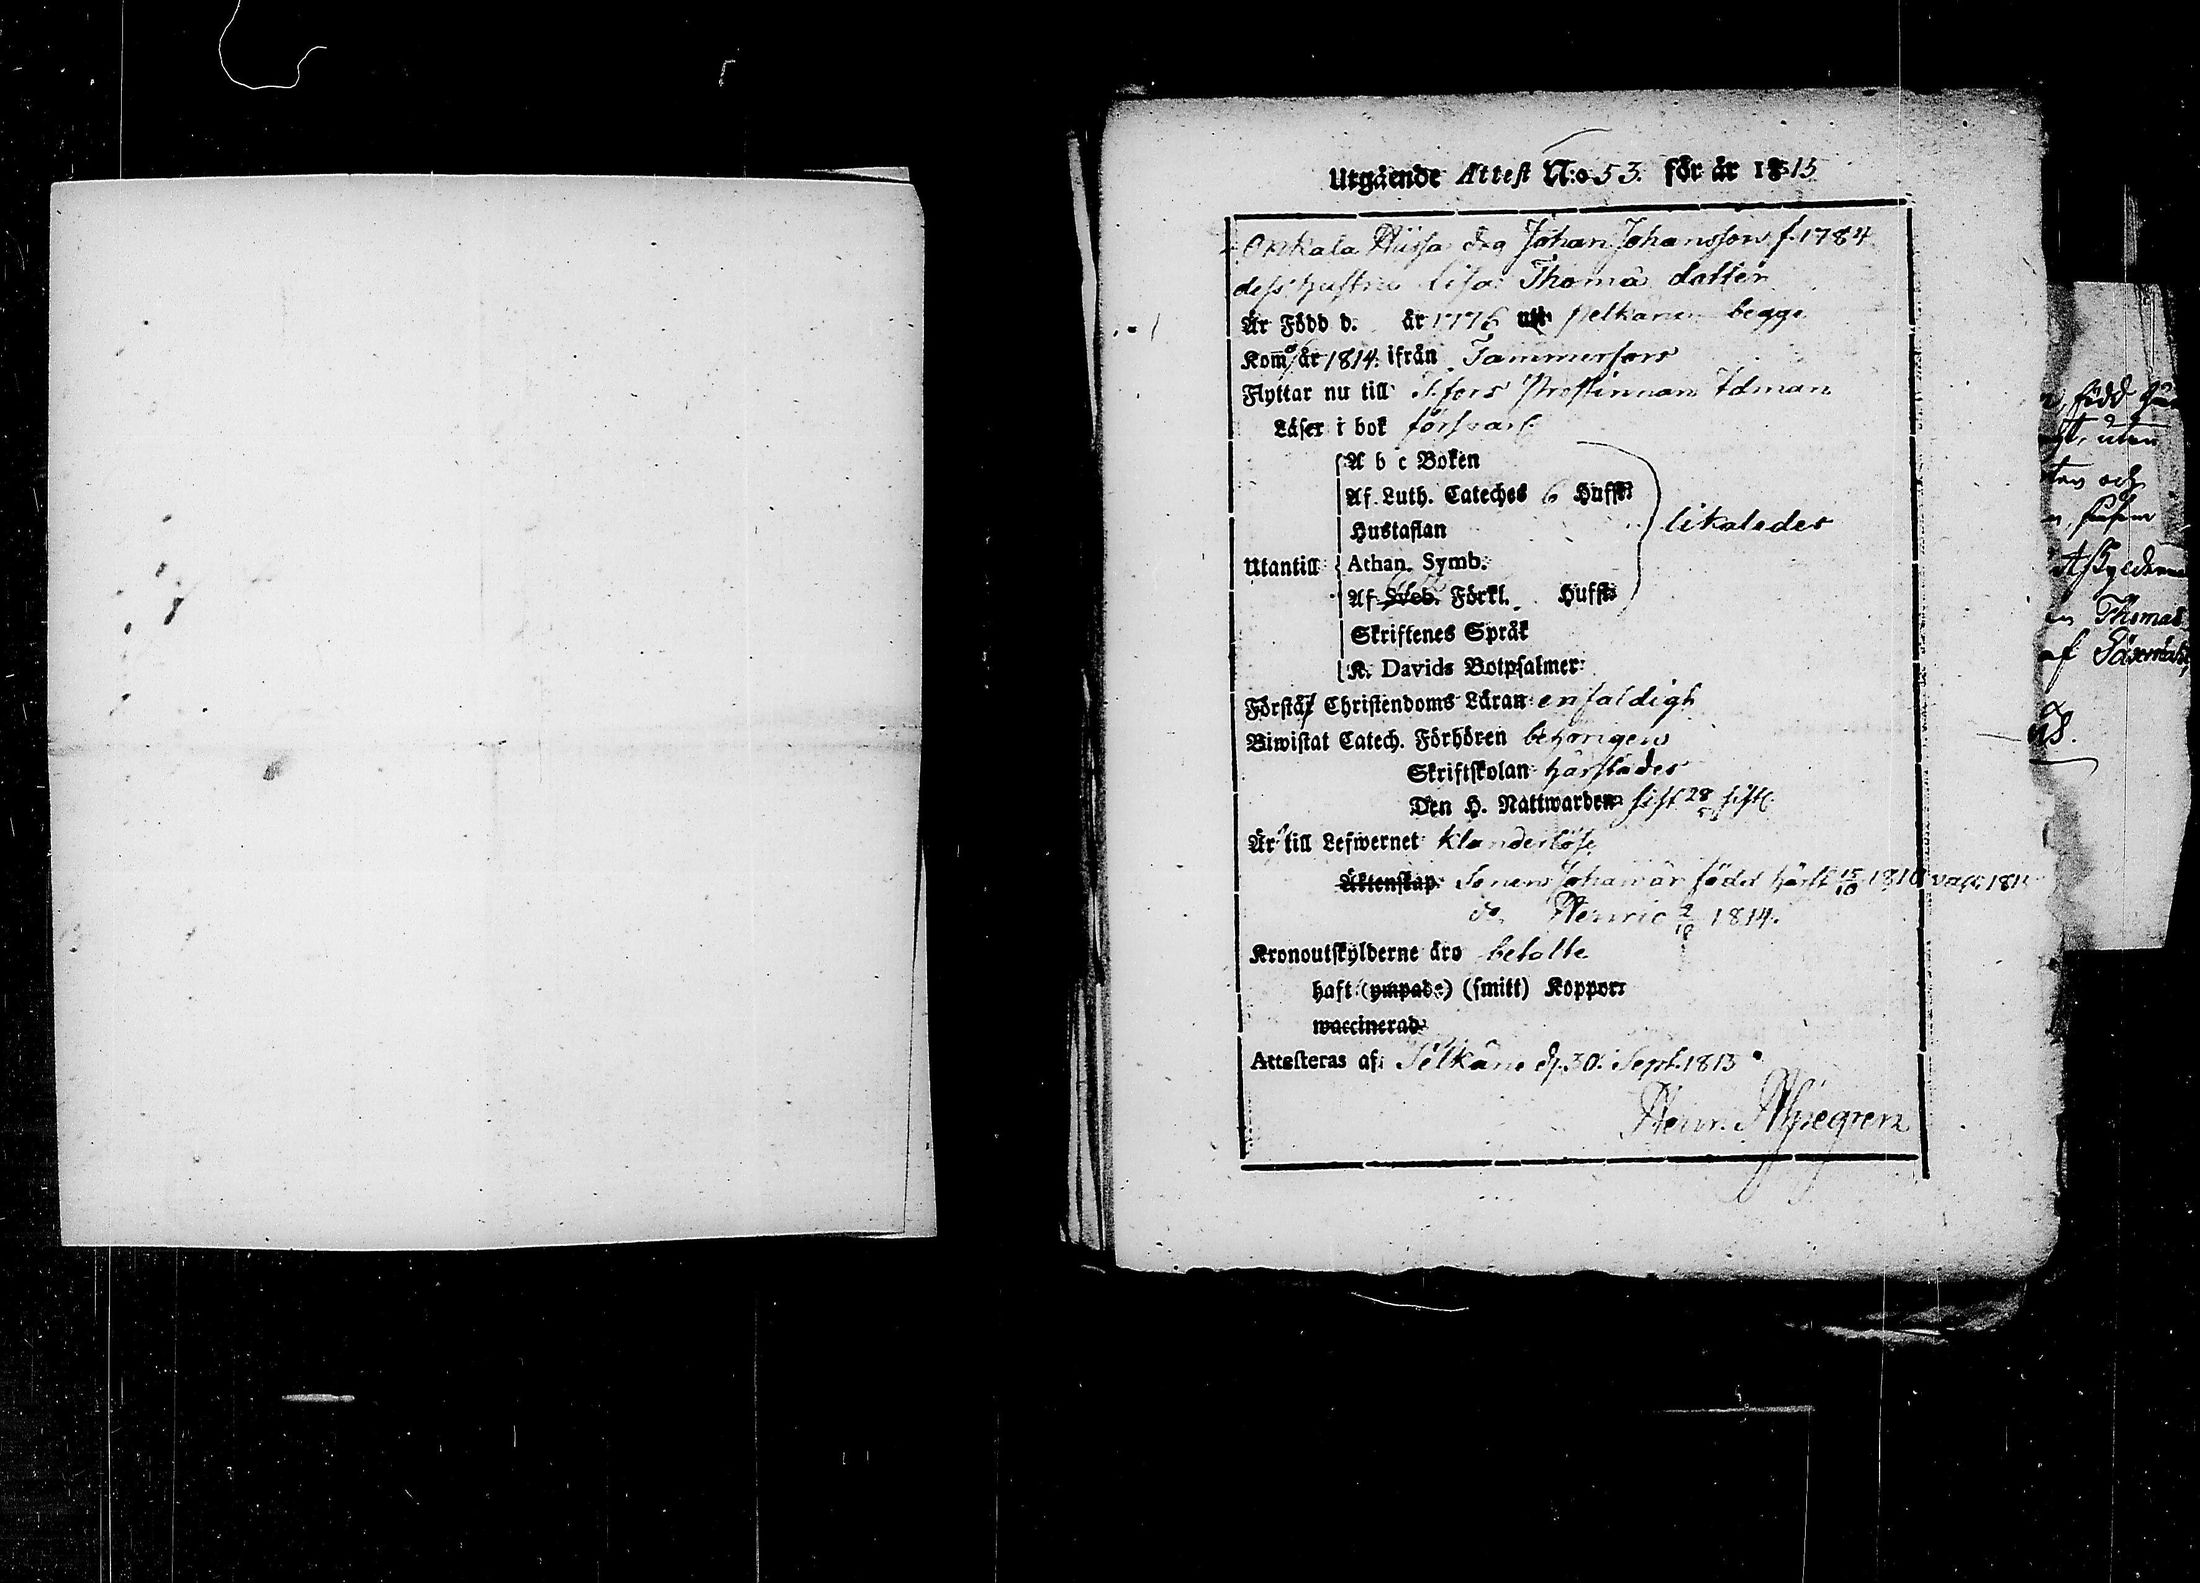 Utgående Attest N:o 53. för år 1815
Onkala Hüssa drg Johan Johansson f. 1784
dess hustru Lisa Thomä dotter
Är Född d. år 1776 uti begge
Kom år 1814. ifrån Tammerfors
Flyttar nu till T.fors Prostinnan Idman
Läser i bok försvarl.
A b c Boken
Af Luth. Cateches 6 Hufst:
Hustaflan
likaledes
Utantill Athan. Symb.
Af Sveb. Förkl. Hufst:
Skriftenes Språk
K. Davids Botpsalmer
Förstår Christendoms Läran enfaldigt
Biwistat Catech. Förhören behörigen
Skriftskolan härstädes
Den H. Nattwarden sist 28
Är till Lefwernet klanderlöse
Äktenskap. Sonen Johan är född härst. 15/10 1810 vacc.
do Henric 2/10 1814.
Kronoutskylderne äro betalte
haft (ympade) (smitt) Koppor
waccinerad
Attesteras af Pelkäne d. 30. Sept. 1815
Henr.
född
utan
och
Thomas
af